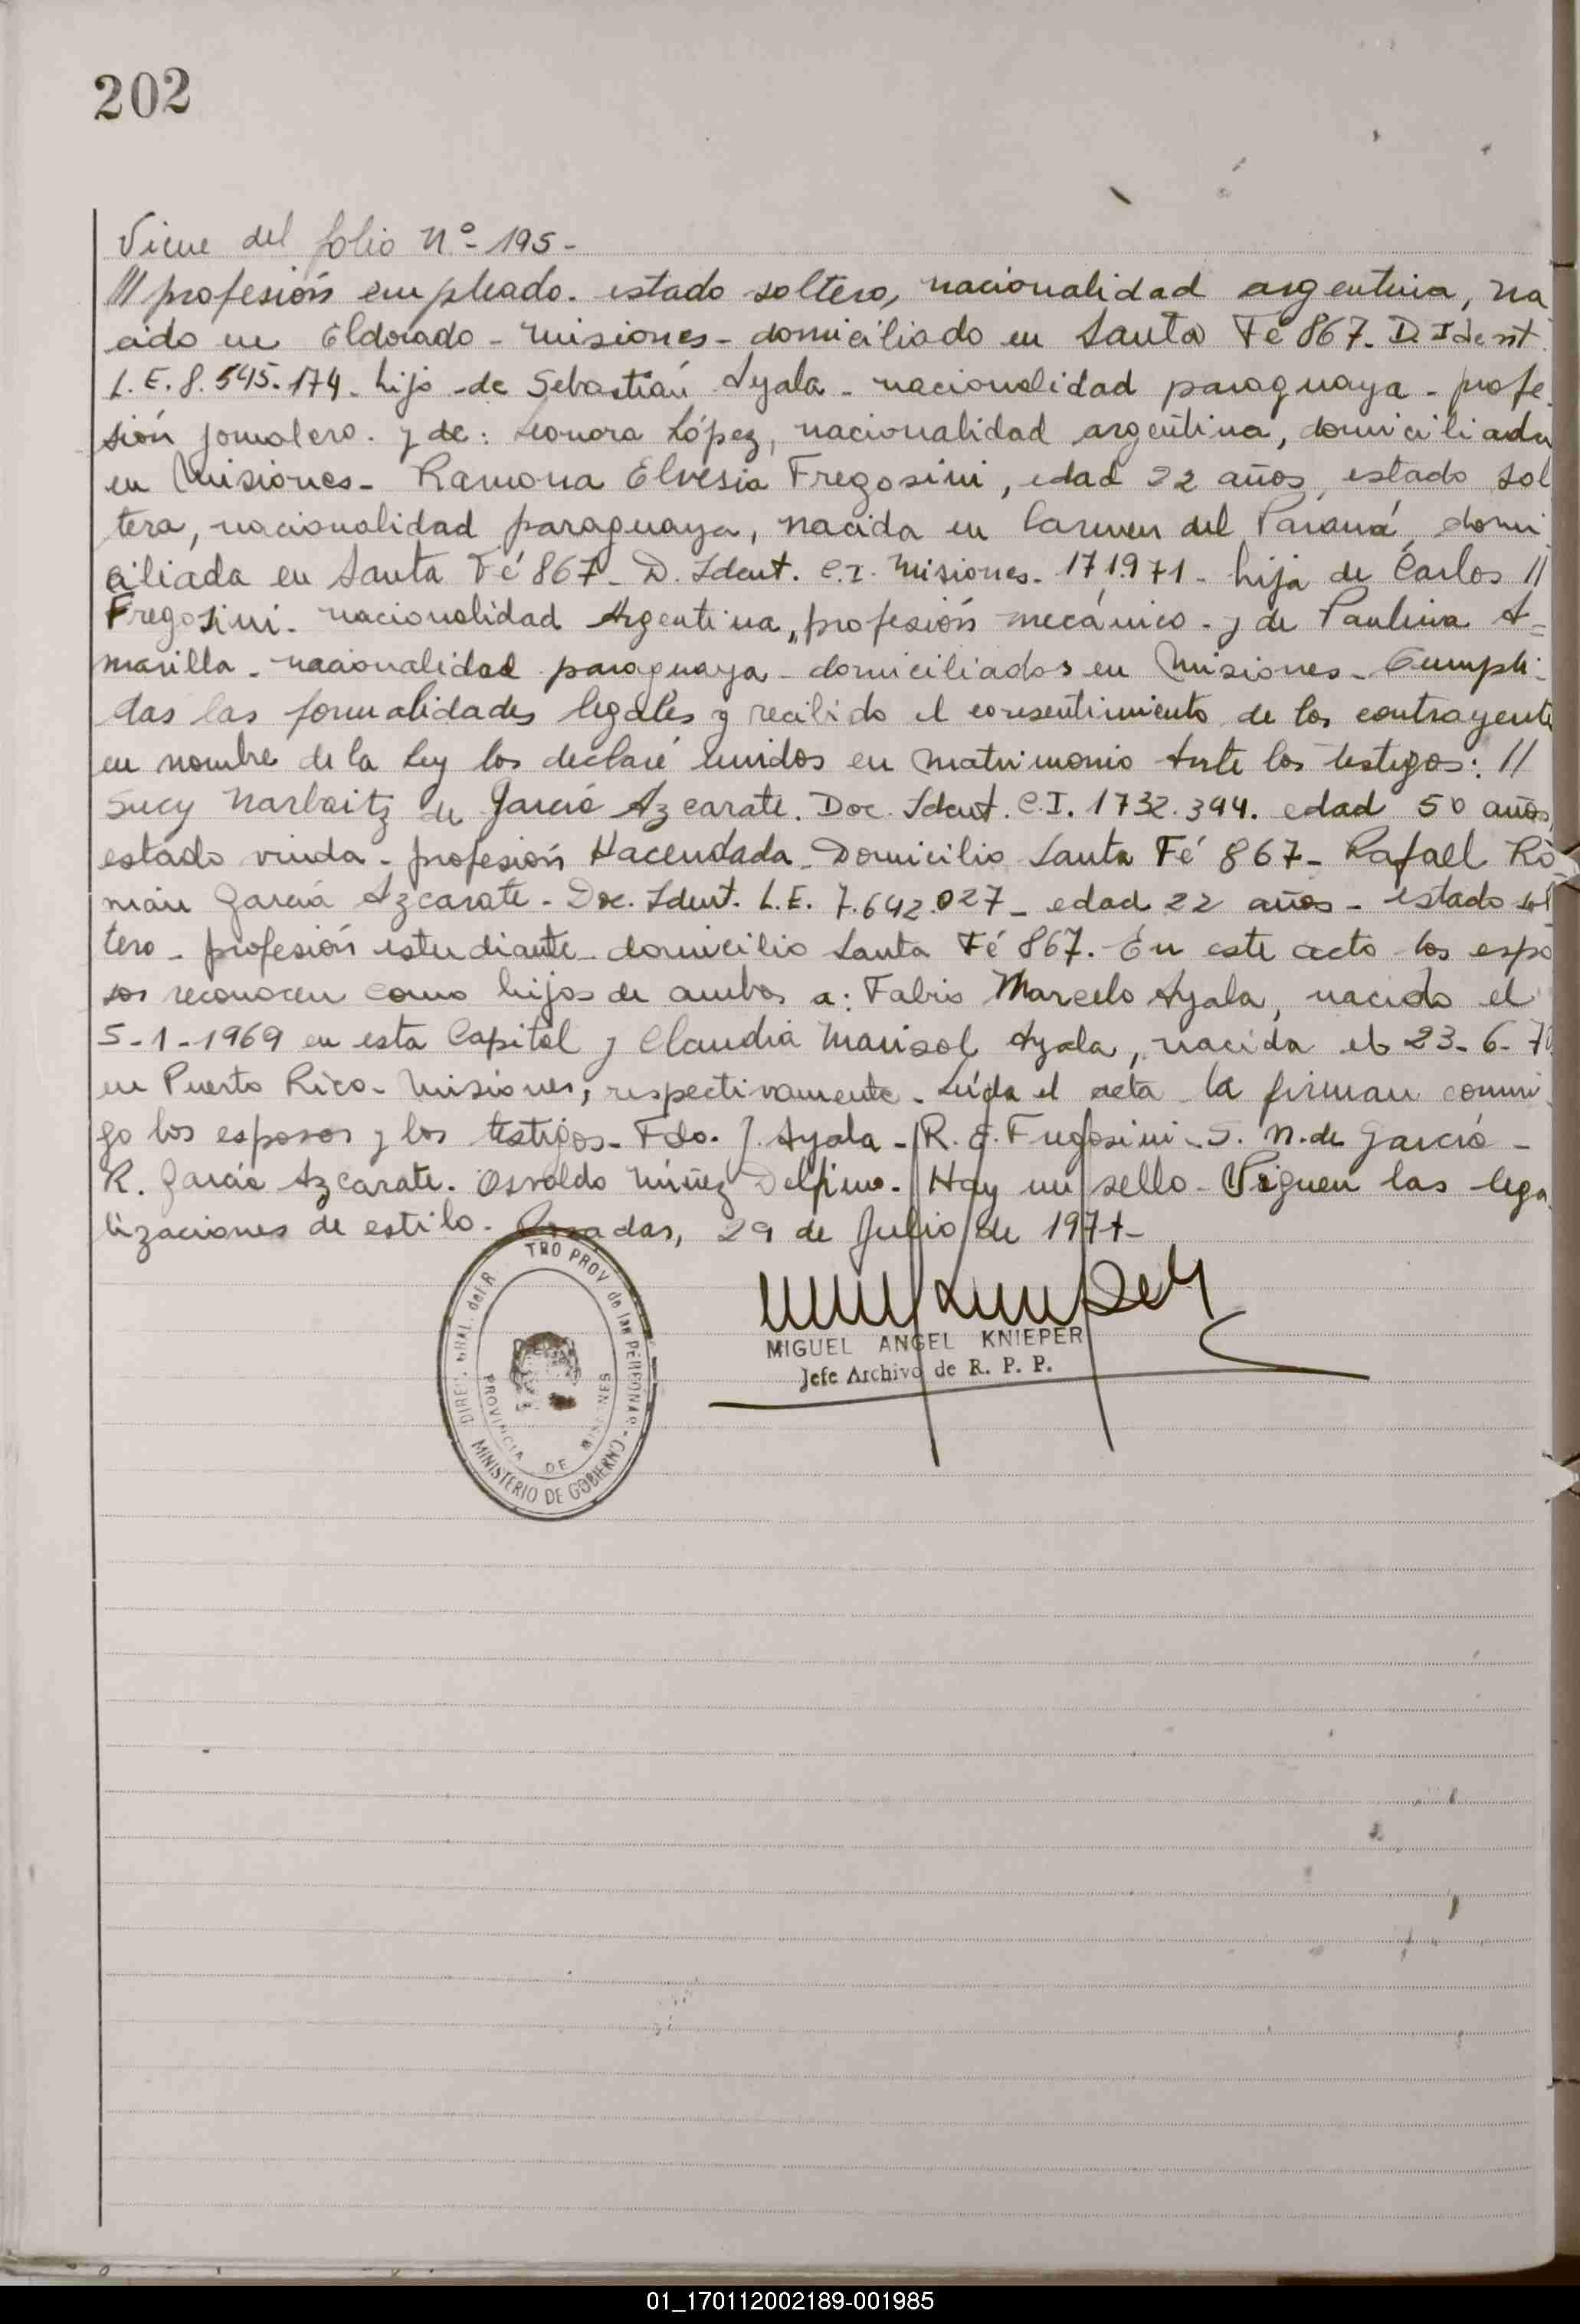 202
Viene del folio Nº- 195-
/// profesión empleado. estado soltero, nacionalidad argentina, na
cido en Eldorado - Misiones - domiciliado en Santa Fé 867. D Ident.
L.E. 8.545.174. hijo de Sebastián Ayala - nacionalidad paraguaya - profe
sión jornalero. y de: Leonora López, nacionalidad argentina, domiciliada
en Misiones - Ramona Elvesia Fregosini, edad 22 años, estado sol
tera, nacionalidad paraguaya, nacida en Carmen del Paraná, domi
ciliada en Santa Fé 867 - D. Ident. C.I. Misiones. 171.971 - hija de Carlos //
Fregosini - nacionalidad Argentina, profesión mecánico - y de Paulina A=
marilla - nacionalidad paraguaya - domiciliados en Misiones - Cumpli-
das las formalidades legales y recibido el consentimiento de los contrayente
en nombre de la Ley los declaré unidos en Matrimonio Ante los testigos: //
Sucy Narbaitz de García Azcarate. Doc. Ident. C.I. 1732.394. edad 50 años,
estado viuda - profesión Hacendada - Domicilio Santa Fé 867 - Rafael Ro
mán García Azcarate - Doc. Ident. L.E. 7.642.027 - edad 22 años - estado sol
tero - profesión estudiante - domicilio Santa Fé 867. En este acto los espo
sos reconocen como hijos de ambos a: Fabio Marcelo Ayala, nacido el
5-1-1969 en esta Capital y Claudia Marisol Ayala, nacida el 23-6-70
en Puerto Rico - Misiones, respectivamente - Leída el acta la firman conmi
go los esposos y los testigos - Fdo. J. Ayala - R. E. Fregosini - S. N. de García -
R. García Azcarate. Osvaldo Núñez Delfino - Hay un sello - Siguen las lega
lizaciones de estilo - Posadas, 29 de Julio de 1971-
MIGUEL ANGEL KNIEPER
Jefe Archivo de R. P. P.
DIREC. GRAL. del R TRO PROV de las PERSONAS -
MINISTERIO DE GOBIERNO -
PROVINCIA DE MISIONES
01_170112002189-001985